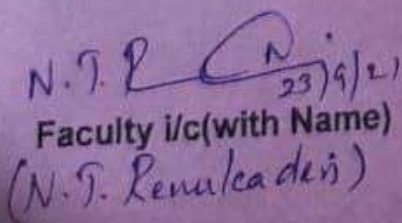 N.T.R
23/9/21
Faculty i/c(with Name)
(N.T. Renukadevi)